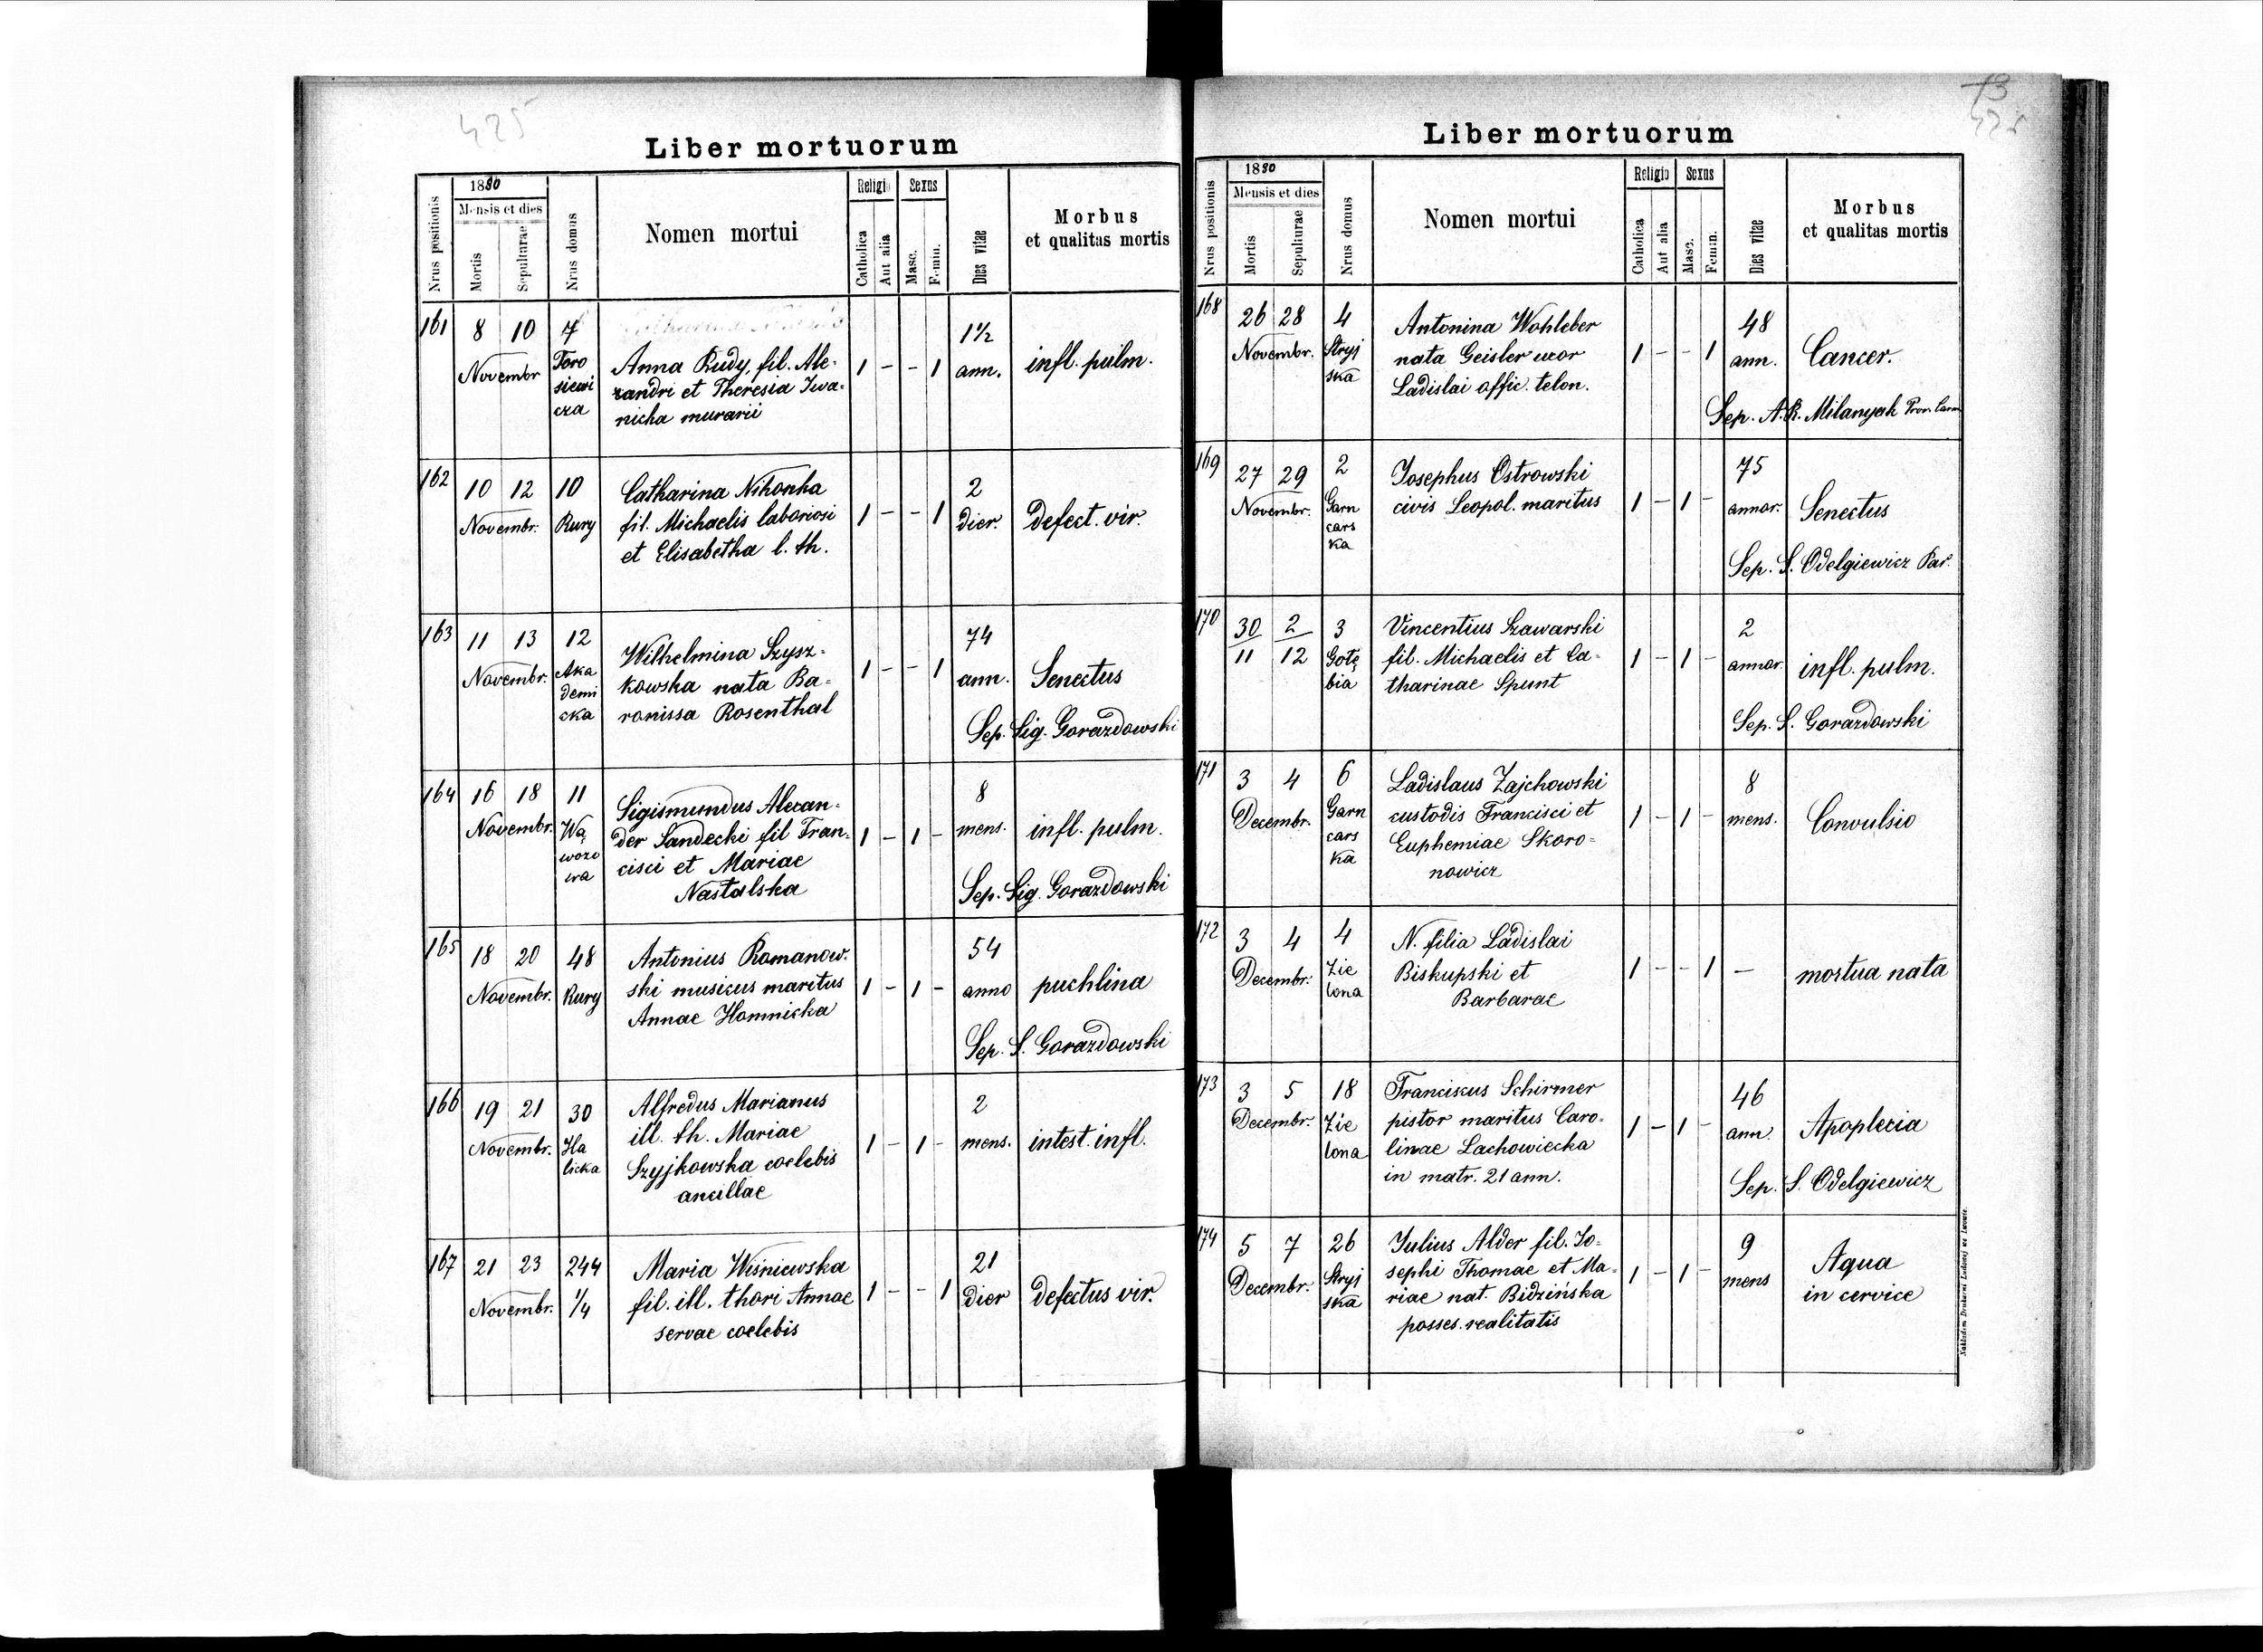 425
Liber mortuorum
Nrus positionis
1880
Mensis et dies
Mortis
Sepulturae
Nrus domus
Nomen mortui
Religio
Catholica
Aut alia
Sexus
Masc.
Femin.
Dies vitae
Morbus
et qualitas mortis
161
8 10 7
Novembr
Toro
siewi
cza
Anna Rudy, fil. Ale-
xandri et Theresia Iwa-
nicka murarii
1 - - 1
1½
ann.
infl. pulm.
162
10 12 10
Novembr. Rury
Catharina Nikonka
fil. Michaelis laboriosi
et Elisabetha l. th.
1 - - 1
2
dier.
defect. vir.
163
11 13 12
Novembr.
Aka
demi
cka
Wilhelmina Szysz-
kowska nata Ba-
ronissa Rosenthal
1 - - 1
74
ann.
Senectus
Sep. Sig. Gorazdowski
164
16 18 11
Novembr.
Wą
wozo
wa
Sigismundus Alexan-
der Sandecki fil Fran-
cisci et Mariae
Nastalska
1 - 1 -
8
mens.
infl. pulm.
Sep. Sig. Gorazdowski
165
18 20 48
Novembr. Rury
Antonius Romanow-
ski musicus maritus
Annae Homnicka
1 - 1 -
54
anno
puchlina
Sep. S. Gorazdowski
166
19 21 30
Novembr.
Ha
licka
Alfredus Marianus
ill. th. Mariae
Szyjkowska coelebis
ancillae
1 - 1 -
2
mens.
intest. infl.
167
21 23 244
Novembr. 1/4
Maria Wiśniewska
fil. ill. thori Annae
servae coelebis
1 - - 1
21
dier
defectus vir.
Liber mortuorum
Nrus positionis
1880
Mensis et dies
Mortis
Sepulturae
Nrus domus
Nomen mortui
Religio
Catholica
Aut alia
Sexus
Masc.
Femin.
Dies vitae
Morbus
et qualitas mortis
168
26 28 4
Novembr.
Stryj
ska
Antonina Wohleber
nata Geisler uxor
Ladislai offic. telon.
1 - - 1
48
ann.
Cancer.
Sep. A.R. Milanyak Prov. Carm
169
27 29 2
Novembr.
Garn
cars
ka
Josephus Ostrowski
civis Leopol. maritus
1 - 1 -
75
annor.
Senectus
Sep. S. Odelgiewicz Par.
170
30 2 3
11 12
Gołę
bia
Vincentius Szawarski
fil. Michaelis et Ca-
tharinae Spunt
1 - 1 -
2
annor.
infl. pulm.
Sep. S. Gorazdowski
171
3 4 6
Decembr.
Garn
cars
ka
Ladislaus Zajchowski
custodis Francisci et
Euphemiae Skoro-
nowicz
1 - 1 -
8
mens.
Convulsio
172
3 4 4
Decembr.
Zie
lona
N. filia Ladislai
Biskupski et
Barbarae
1 - - 1
-
mortua nata
173
3 5 18
Decembr.
Zie
lona
Franciscus Schirmer
pistor maritus Caro-
linae Lachowiecka
in matr. 21 ann.
1 - 1 -
46
ann.
Apoplexia
Sep. S. Odelgiewicz
174
5 7 26
Decembr.
Stryj
ska
Julius Alder fil. Jo-
sephi Thomae et Ma-
riae nat. Bidzińska
posses. realitatis
1 - 1 -
9
mens
Aqua
in cervice
Nakładem Drukarni Ludowej we Lwowie.